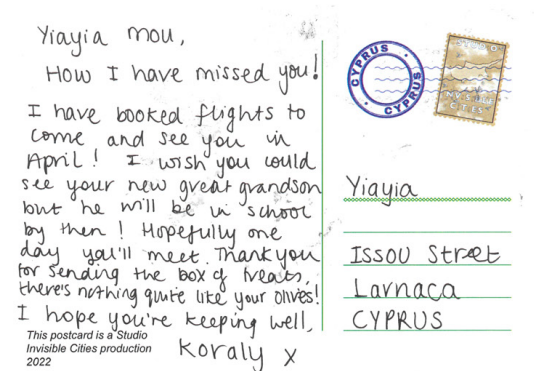 Yiayia mou,
How I have missed you!
I have booked flights to
come and see you in
April! I wish you could
see your new great grandson
but he will be in school
by then! Hopefully one
day you'll meet. Thank you
for sending the box of treats,
there's nothing quite like your olives!
I hope you're keeping well,
Koraly x
This postcard is a Studio
Invisible Cities production
2022
CYPRUS
CYPRUS
INVISIBLE
CITIES
Yiayia
Issou Street
Larnaca
CYPRUS